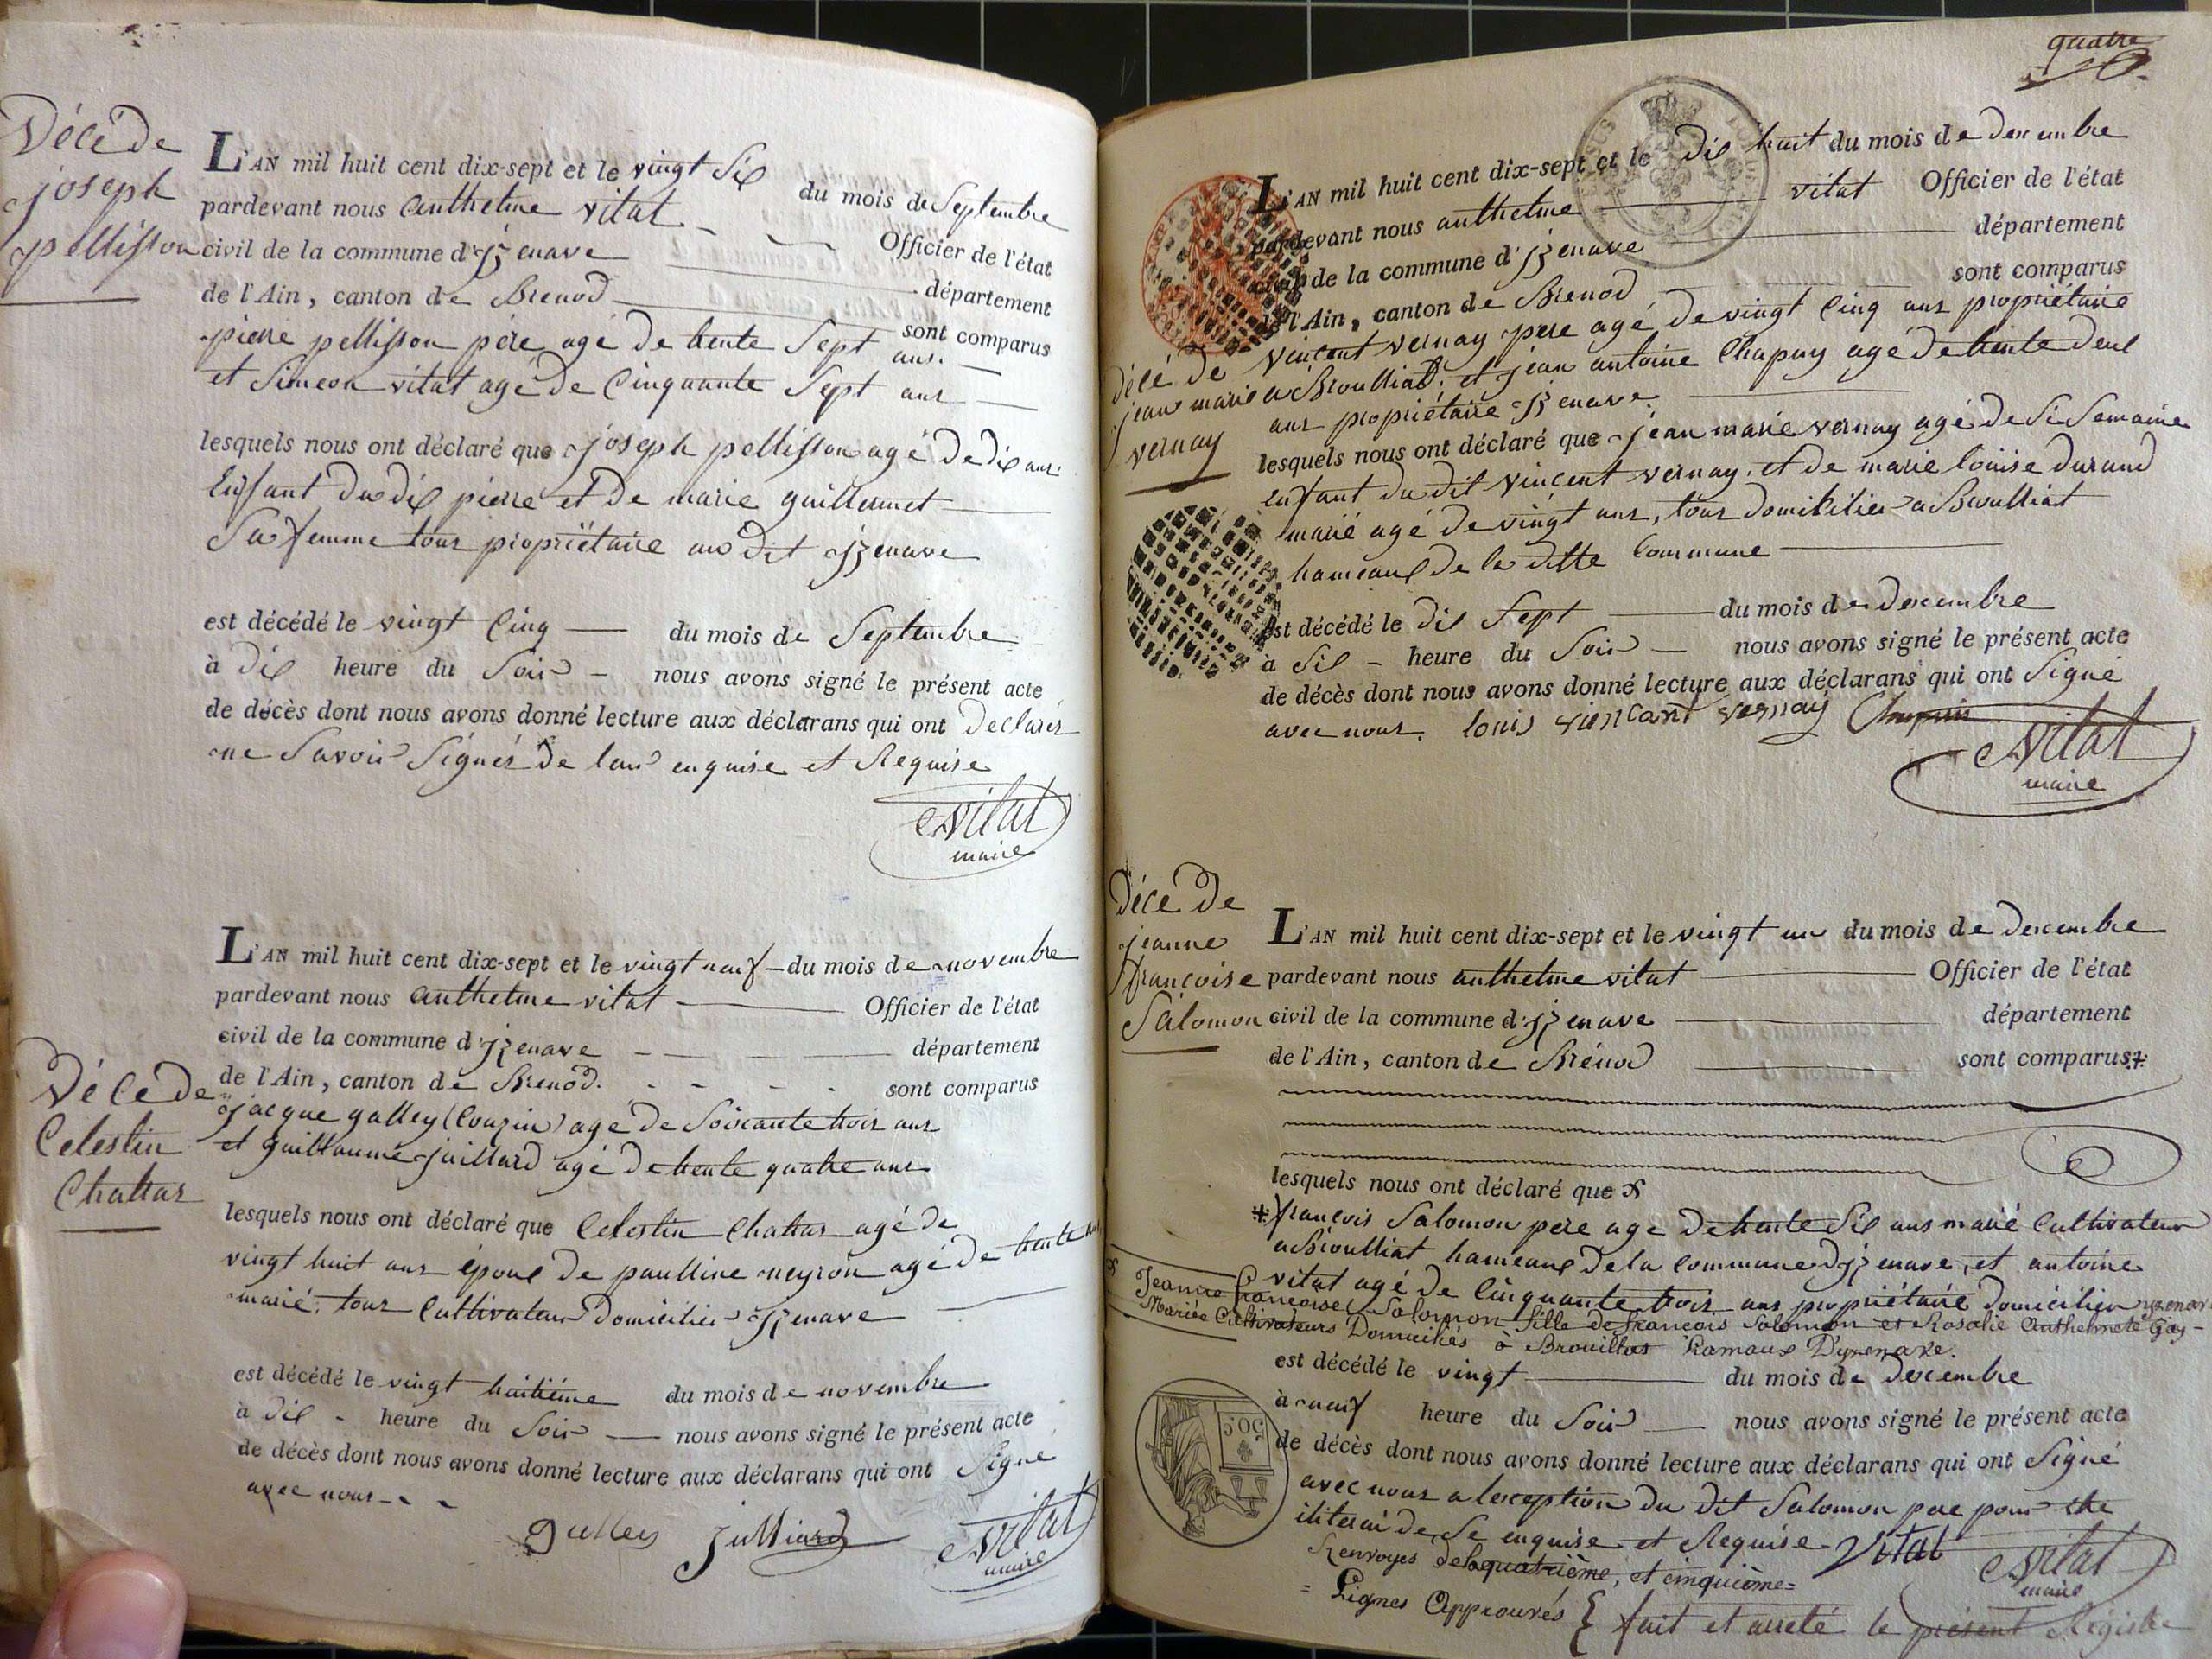 Décé de
joseph
pellisson
L'AN mil huit cent dix-sept et le vingt Six du mois de Septembre
pardevant nous anthelme vitat Officier de l'état
civil de la commune d'jzenave département
de l'Ain, canton de Brenod sont comparus
pierre pellisson pére agé de trente Sept ans.
et Simeon vitat agé de Cinquante Sept ans
lesquels nous ont déclaré que joseph pellisson agé de dix ans
Enfant du dit pierre et de marie guillermet
Sa femme tous propriétaire au dit jzenave
est décédé le vingt Cinq du mois de Septembre
à dix heure du Soir nous avons signé le présent acte
de décès dont nous avons donné lecture aux déclarans qui ont Déclarés
ne Savoir Signés de leur enquise et Requise
Vitat
maire
Décé de
Celestin
Chattar
L'AN mil huit cent dix-sept et le vingt neuf du mois de novembre
pardevant nous anthelme vitat Officier de l'état
civil de la commune d'jzenave département
de l'Ain, canton de Brenod. sont comparus
jacque galley (Couzin) agé de Soixante trois ans
et guillaume juillard agé de trente quatre ans
lesquels nous ont déclaré que Celestin Chattar agé de
vingt huit ans époux de paulline neyron agé de trente
marié, tous Cultivateur Domicilier jzenave
est décédé le vingt huitiéme du mois de novembre
à dix heure du Soir nous avons signé le présent acte
de décès dont nous avons donné lecture aux déclarans qui ont Signé
avec nous
Galley Julliard Vitat
maire
quatre
Décé de
jean marie
vernay
L'AN mil huit cent dix-sept et le dix huit du mois de decembre
pardevant nous anthelme vitat Officier de l'état
civil de la commune d'jzenave département
de l'Ain, canton de Brenod sont comparus
vincent vernay pere agé de vingt Cinq ans propriétaire
a Broulliat, et jean antoine Chapuy agé de trente deux
ans propriétaire jzenave.
lesquels nous ont déclaré que jean marie vernay agé de Si Semaine
enfant du dit vincent vernay. et de marie louise durand
marié agé de vingt ans, tous domicilier a Broulliat
hameaux de la ditte Commune
est décédé le dix Sept du mois de decembre
à Six heure du Soir nous avons signé le présent acte
de décès dont nous avons donné lecture aux déclarans qui ont Signé
avec nous. louis viencant vernay Chapuis
Vitat
maire
Décé de
jeanne
françoise
Salomon
L'AN mil huit cent dix-sept et le vingt un du mois de decembre
pardevant nous anthelme vitat Officier de l'état
civil de la commune d'jzenave département
de l'Ain, canton de Brénod sont comparus
lesquels nous ont déclaré que
françois Salomon pere agé de trente Six ans marié Cultivateur
a Broulliat hameaux de la Commune d'jzenave, et antoine
vitat agé de Cinquante trois ans propriétaire domicilier
Jeanne françoise Salomon fille de francois Salomon et Rosalie Anthelmete Gay
Mariés Cultivateurs Domiciliés à Brouillat hamaux D'yzenave.
est décédé le vingt du mois de decembre
à neuf heure du Soir nous avons signé le présent acte
50C
de décès dont nous avons donné lecture aux déclarans qui ont Signé
avec nous a lexception du dit Salomon pere pour
de Se enquise et Requise Vitat
Renvoyes de la quatrième, et cinquième
Lignes Approuvés
Vitat
maire
fait et arreté le présent Régistre